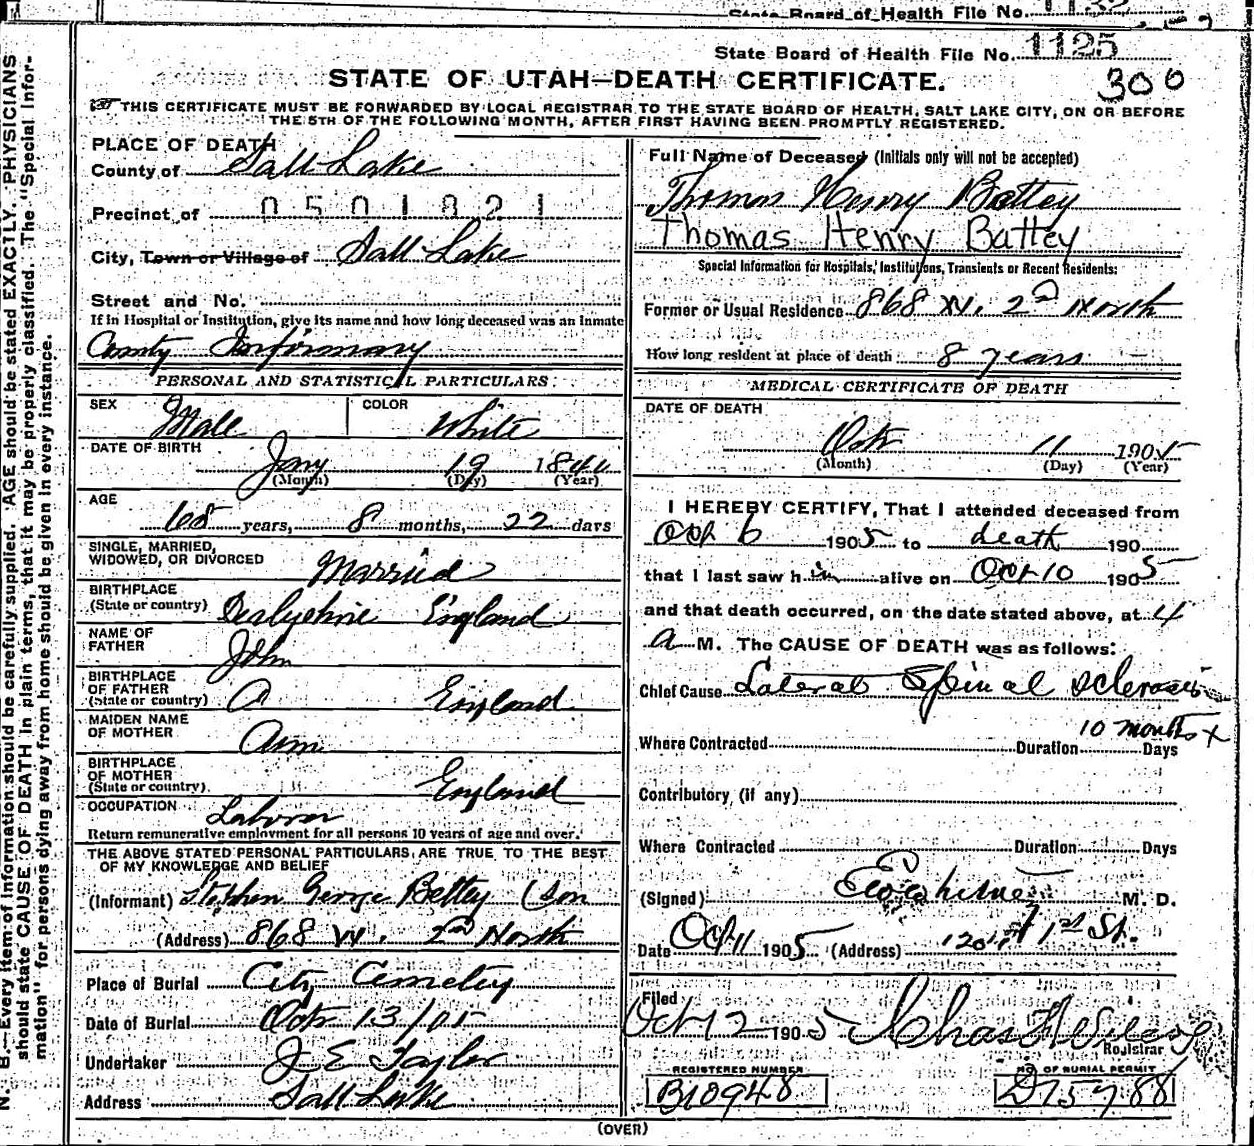 State Board of Health File No. 1132
State Board of Health File No. 1125
300
STATE OF UTAH—DEATH CERTIFICATE.
THIS CERTIFICATE MUST BE FORWARDED BY LOCAL REGISTRAR TO THE STATE BOARD OF HEALTH, SALT LAKE CITY, ON OR BEFORE
THE 5TH OF THE FOLLOWING MONTH, AFTER FIRST HAVING BEEN PROMPTLY REGISTERED.
PLACE OF DEATH
County of Salt Lake
Precinct of 0501821
City, Town or Village of Salt Lake
Street and No.
If in Hospital or Institution, give its name and how long deceased was an inmate
County Infirmary
PERSONAL AND STATISTICAL PARTICULARS
SEX Male COLOR White
DATE OF BIRTH
Jany 19 1840
(Month) (Day) (Year)
AGE
65 years, 8 months, 22 days
SINGLE, MARRIED,
WIDOWED, OR DIVORCED Married
BIRTHPLACE
(State or country) Derbyshire England
NAME OF
FATHER John
BIRTHPLACE
OF FATHER
(State or country) England
MAIDEN NAME
OF MOTHER Ann
BIRTHPLACE
OF MOTHER
(State or country) England
OCCUPATION Laborer
Return remunerative employment for all persons 10 years of age and over.
THE ABOVE STATED PERSONAL PARTICULARS ARE TRUE TO THE BEST
OF MY KNOWLEDGE AND BELIEF
(Informant) Stephen George Battey (son
(Address) 868 W. 2nd North
Place of Burial City Cemetery
Date of Burial Oct 13/05
Undertaker J E Taylor
Address Salt Lake
Full Name of Deceased (Initials only will not be accepted)
Thomas Henry Battey
Thomas Henry Battey
Special Information for Hospitals, Institutions, Transients or Recent Residents:
Former or Usual Residence 868 W. 2nd North
How long resident at place of death 8 years
MEDICAL CERTIFICATE OF DEATH
DATE OF DEATH
Oct 11 1905
(Month) (Day) (Year)
I HEREBY CERTIFY, That I attended deceased from
Oct 6 1905 to death 190
that I last saw him alive on Oct 10 1905
and that death occurred, on the date stated above, at 4
a M. The CAUSE OF DEATH was as follows:
Chief Cause Lateral Spinal Sclerosis
10 months x
Where Contracted Duration Days
Contributory (if any)
Where Contracted Duration Days
(Signed) M. D.
Date Oct 11 1905 (Address) 1st St.
Filed
Oct 12 1905 Chas
Registrar
REGISTERED NUMBER
B10948
NO. OF BURIAL PERMIT
D15788
(OVER)
N. B.—Every item of information should be carefully supplied. AGE should be stated EXACTLY. PHYSICIANS
should state CAUSE OF DEATH in plain terms, that it may be properly classified. The "Special Infor-
mation" for persons dying away from home should be given in every instance.